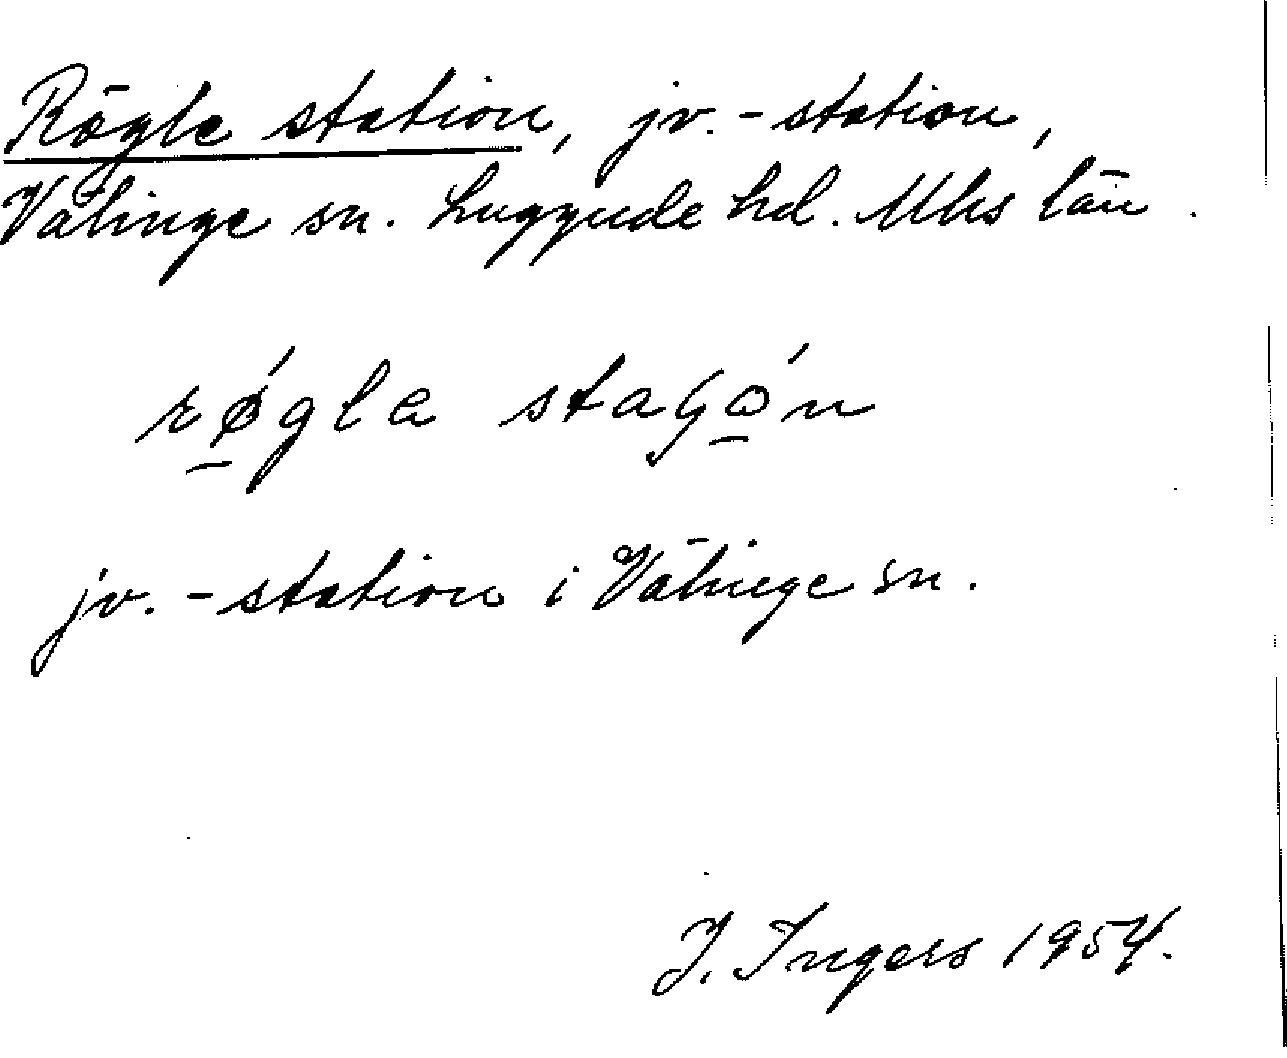 Rögle station, jv.-station,
Välinge sn. Luggude hd. Mhs län.
rǿ̱gla staɧọ́n
jv.-station i Välinge sn.
J. Ingers 1954.